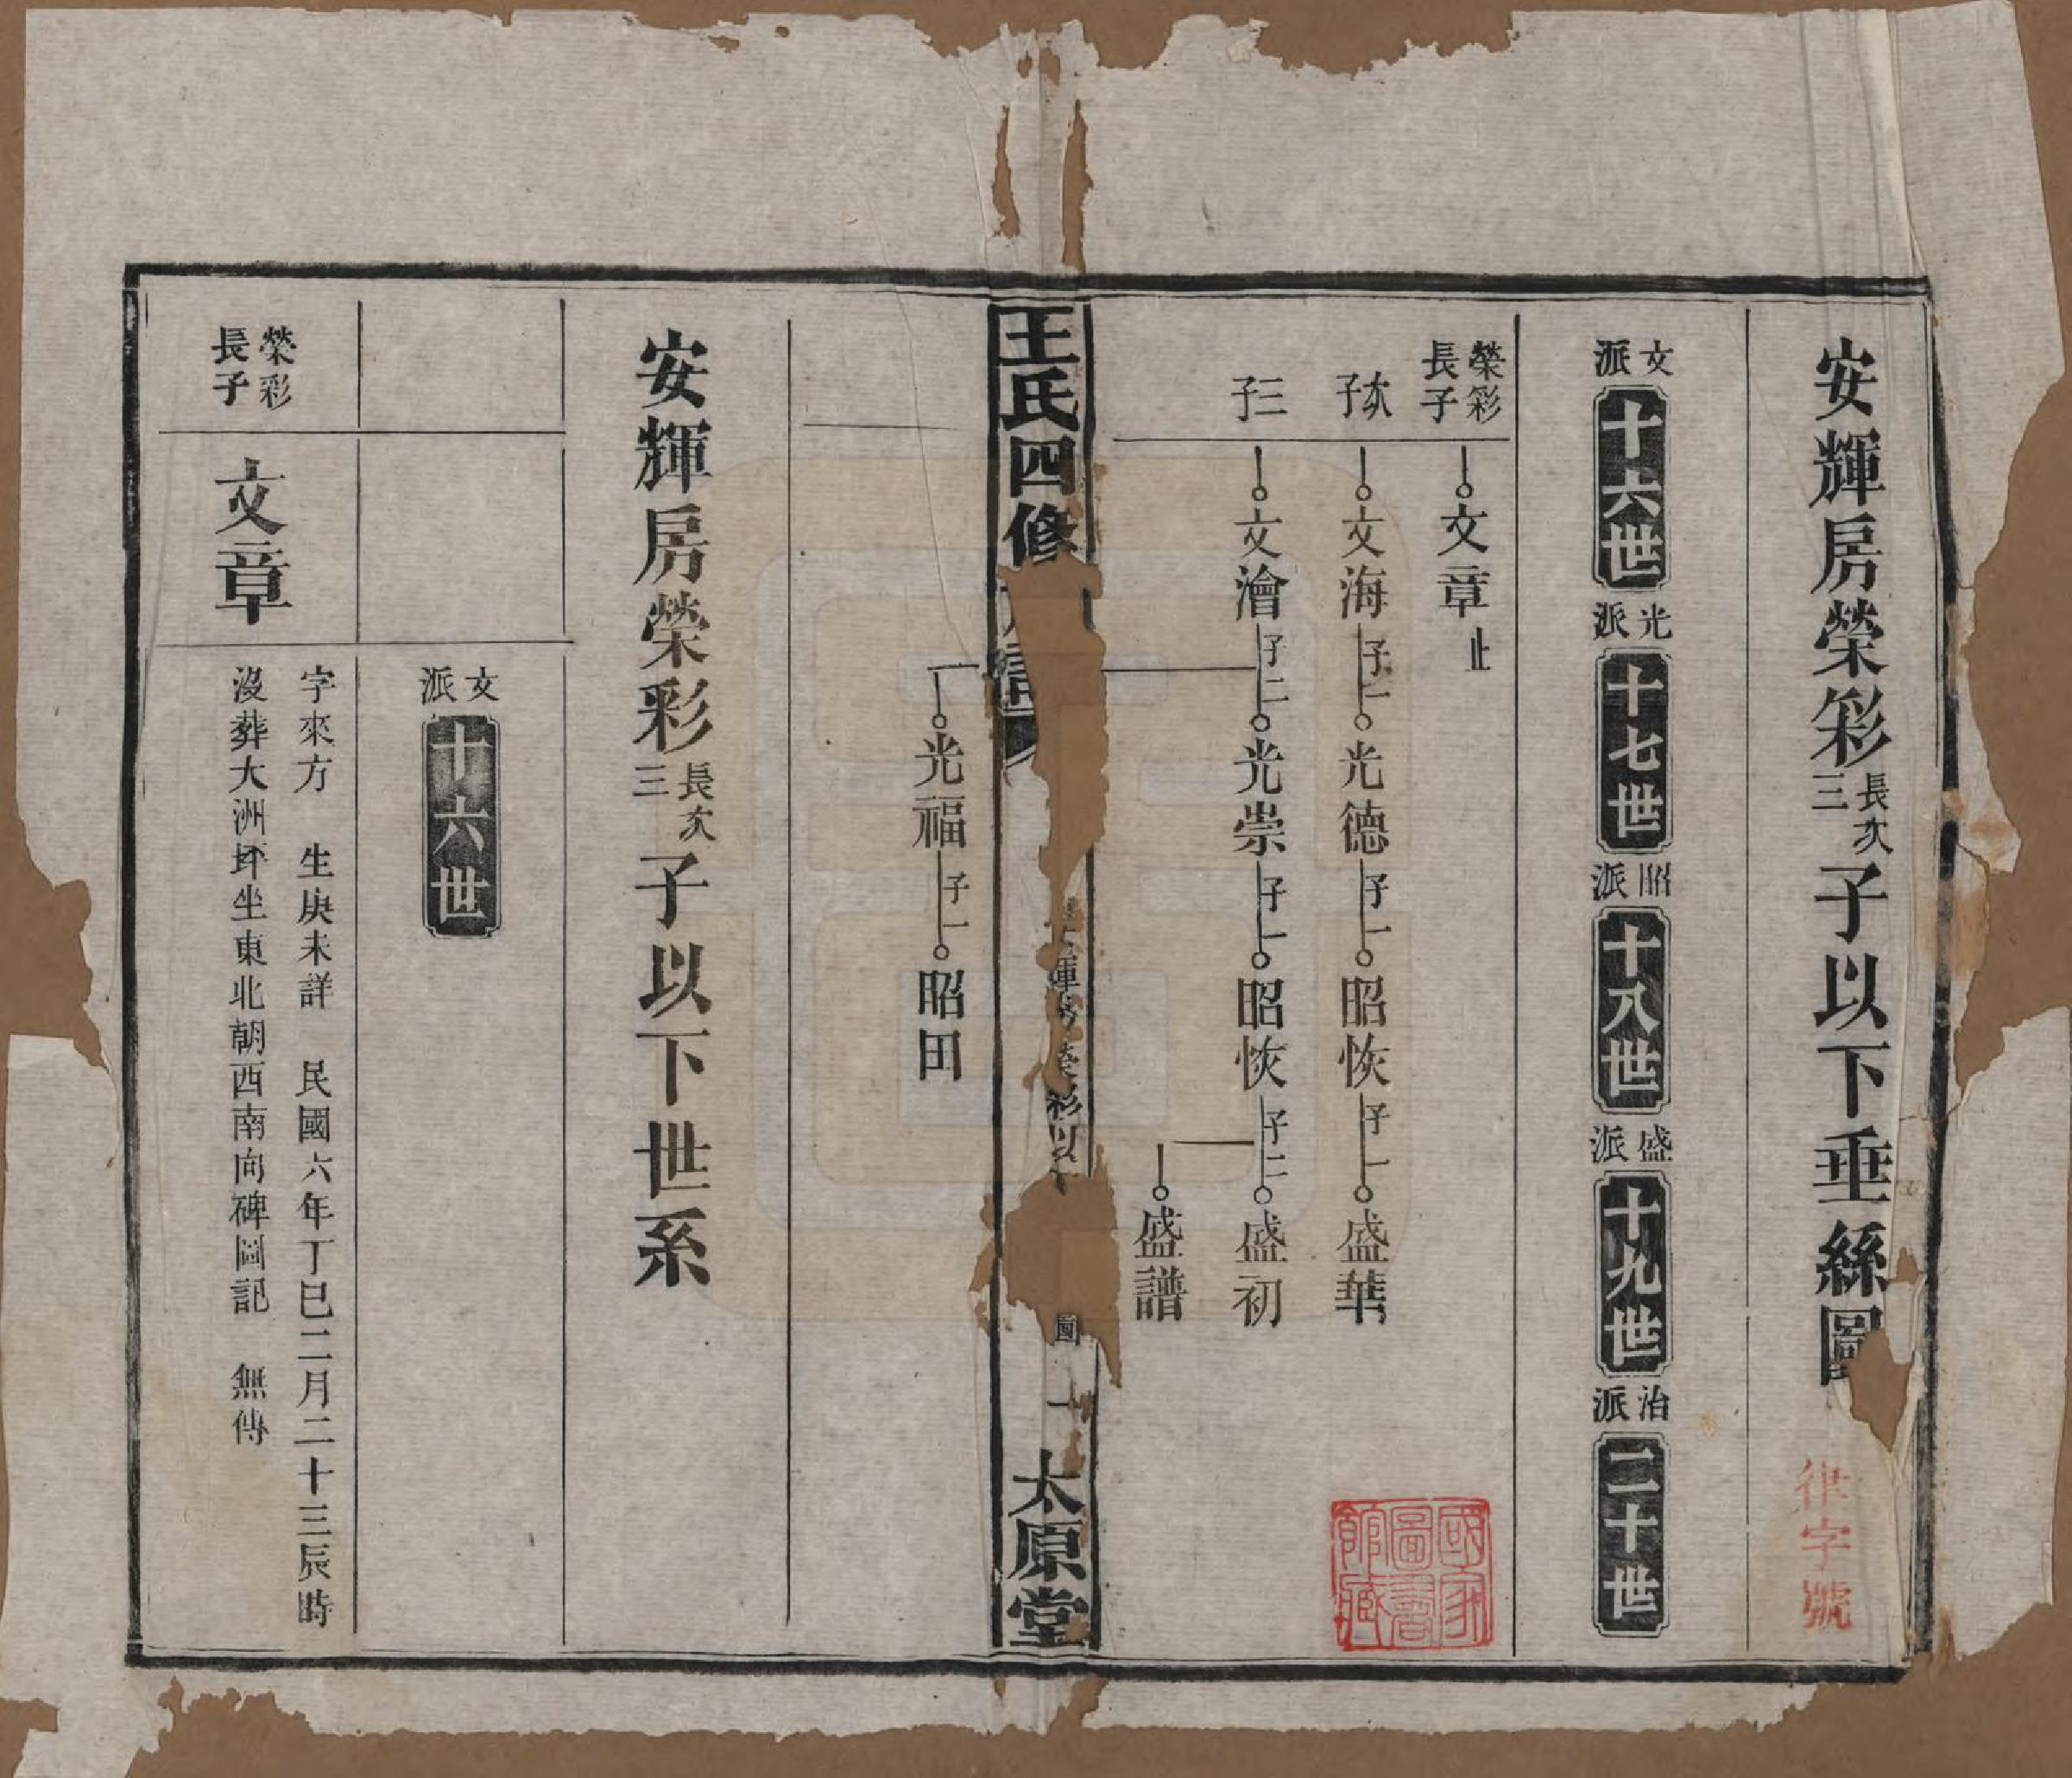 安輝房榮彩長次三子以下垂絲圖
字號
文派十六世光派十七世昭派十八世盛派十九世治派二十世
榮彩長子文章止
次子文海子一光德子一昭恢子一盛華
三子文澮子二光崇子一昭恢子二盛初
盛譜
國家圖書館藏
王氏四修
輝房榮彩以下
圖
一
太原堂
光福子一昭田
安輝房榮彩長次三子以下世系
文派十六世
榮彩長子
文章
字來方 生庚未詳 民國六年丁巳二月二十三辰時
沒葬大洲坪坐東北朝西南向碑圖記 無傳